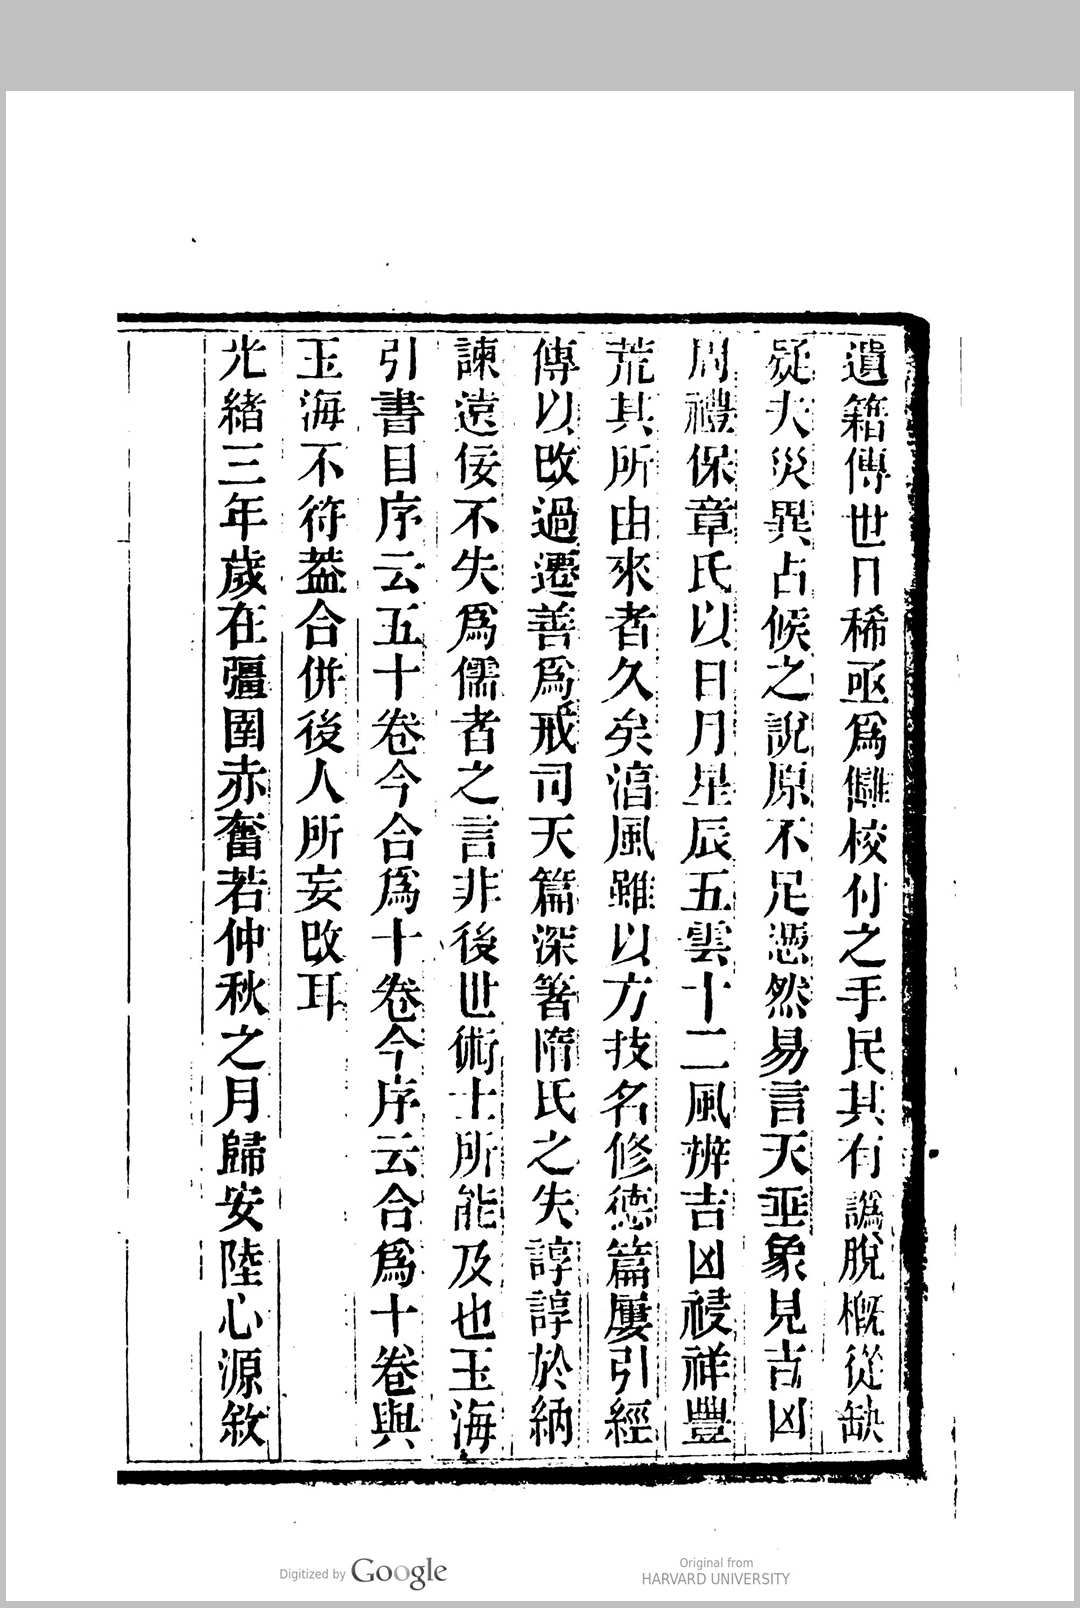 遺籍傳世日稀亟爲讎校付之手民其有譌脫槪從缺
疑夫災異占候之說原不足憑然易言天垂象見吉凶
周禮保章氏以日月星辰五雲十二風辨吉凶祲祥豐
荒其所由來者久矣湻風雖以方技名修德篇屢引經
傳以改過遷善爲戒司天篇深箸隋氏之失諄諄於納
諫遠佞不失爲儒者之言非後世術士所能及也玉海
引書目序云五十卷今合爲十卷今序云合爲十卷與
玉海不符葢合併後人所妄改耳
光緒三年歲在彊圉赤奮若仲秋之月歸安陸心源敘
Digitized by Google
Original from
HARVARD UNIVERSITY